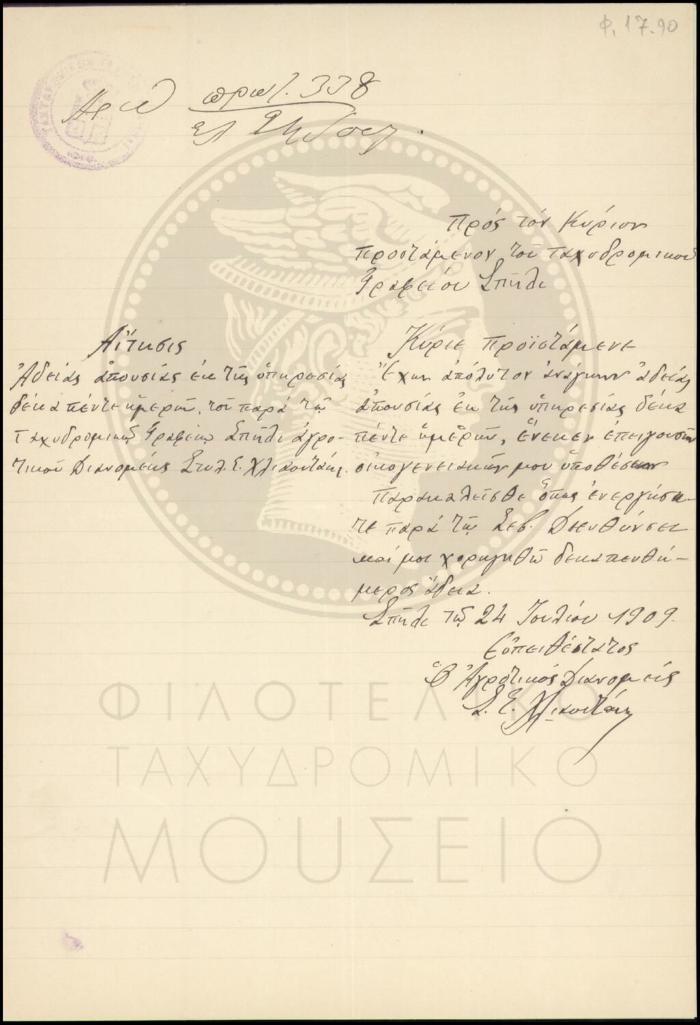 Φ. 17.90
Αριθ πρωτ. 338
Πρός τόν Κύριον
προϊστάμενον τού ταχυδρομικού
Γραφείου Σπήλι
Αἴτησις
Ἀδείας ἀπουσίας ἐκ τῆς ὑπηρεσίας
δέκα πέντε ἡμερῶν, τοῦ παρά τῷ
Ταχυδρομικῷ Γραφείῳ Σπήλι ἀγρο-
τικοῦ Διανομέως Στυλ. Ε.
Κύριε Προϊστάμενε
Ἔχων ἀπόλυτον ἀνάγκην ἀδείας
ἀπουσίας ἐκ τῆς ὑπηρεσίας δέκα
πέντε ἡμερῶν, ἕνεκεν ἐπειγουσῶν
οἰκογενειακῶν μου ὑποθέσεων
Παρακαλεῖσθε ὅπως ἐνεργήσα-
τε παρά τῇ Σεβ. Διευθύνσει
καί μοι χορηγηθῇ δεκαπενθή-
μερος ἄδεια.
Σπήλι τῇ 24 Ἰουλίου 1909.
Εὐπειθέστατος
Ὁ Ἀγροτικός Διανομεύς
Σ. Ε.
ΦΙΛΟΤΕΛΙΚΟ
ΤΑΧΥΔΡΟΜΙΚΟ
ΜΟΥΣΕΙΟ